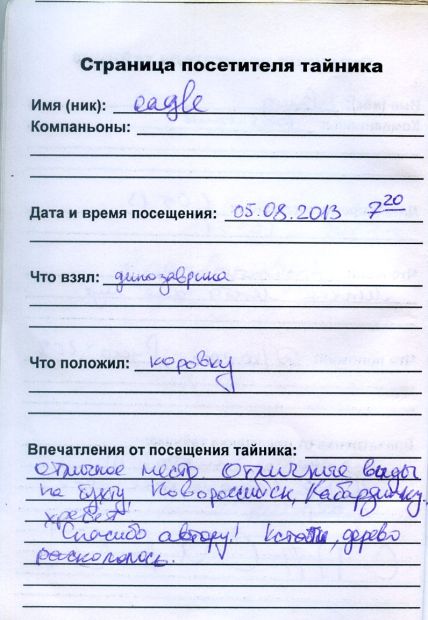 Страница посетителя тайника
Имя (ник): eagle
Компаньоны:
Дата и время посещения: 05.08.2013 7 20
Что взял: динозаврика
Что положил: коровку
Впечатления от посещения тайника:
Отличное место. Отличные виды
на бухту, Новороссийск, Кабардинку,
хребет.
Спасибо автору! Кстати, дерево
раскололось.